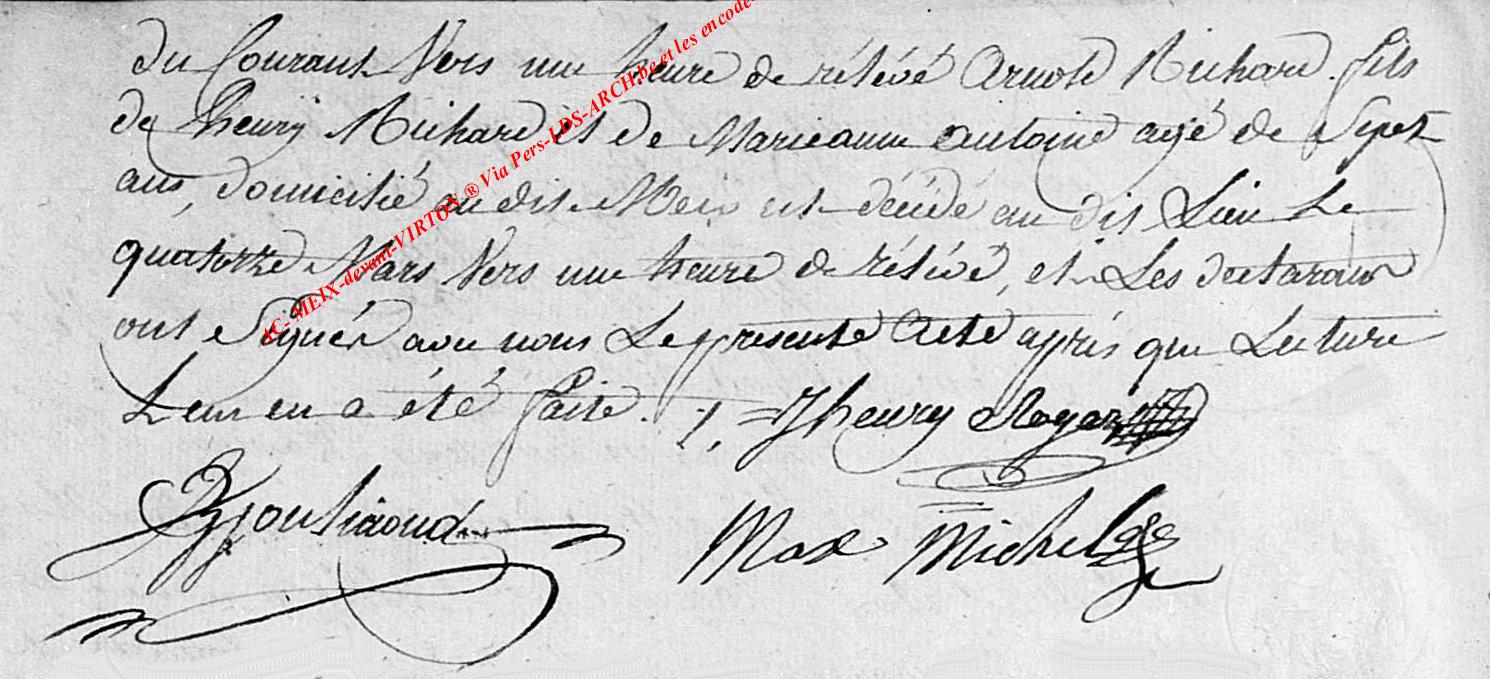 du Courant Vers une heure de rélévé Arnold Richard. fils
de henry Richard et de Marieanne antoine agé de Sept
ans, domicilié au dit Meix est décédé au dit Lieu Le
quatorze Mars Vers une heure de rélévé, et Les declarans
ont Signés avec nous Le présente Acte après que Lecture
Leur en a été faite.
henry
Max Michel
AC- MEIX-devant-VIRTON ® Via Pers-LDS-ARCH.be et les encode-